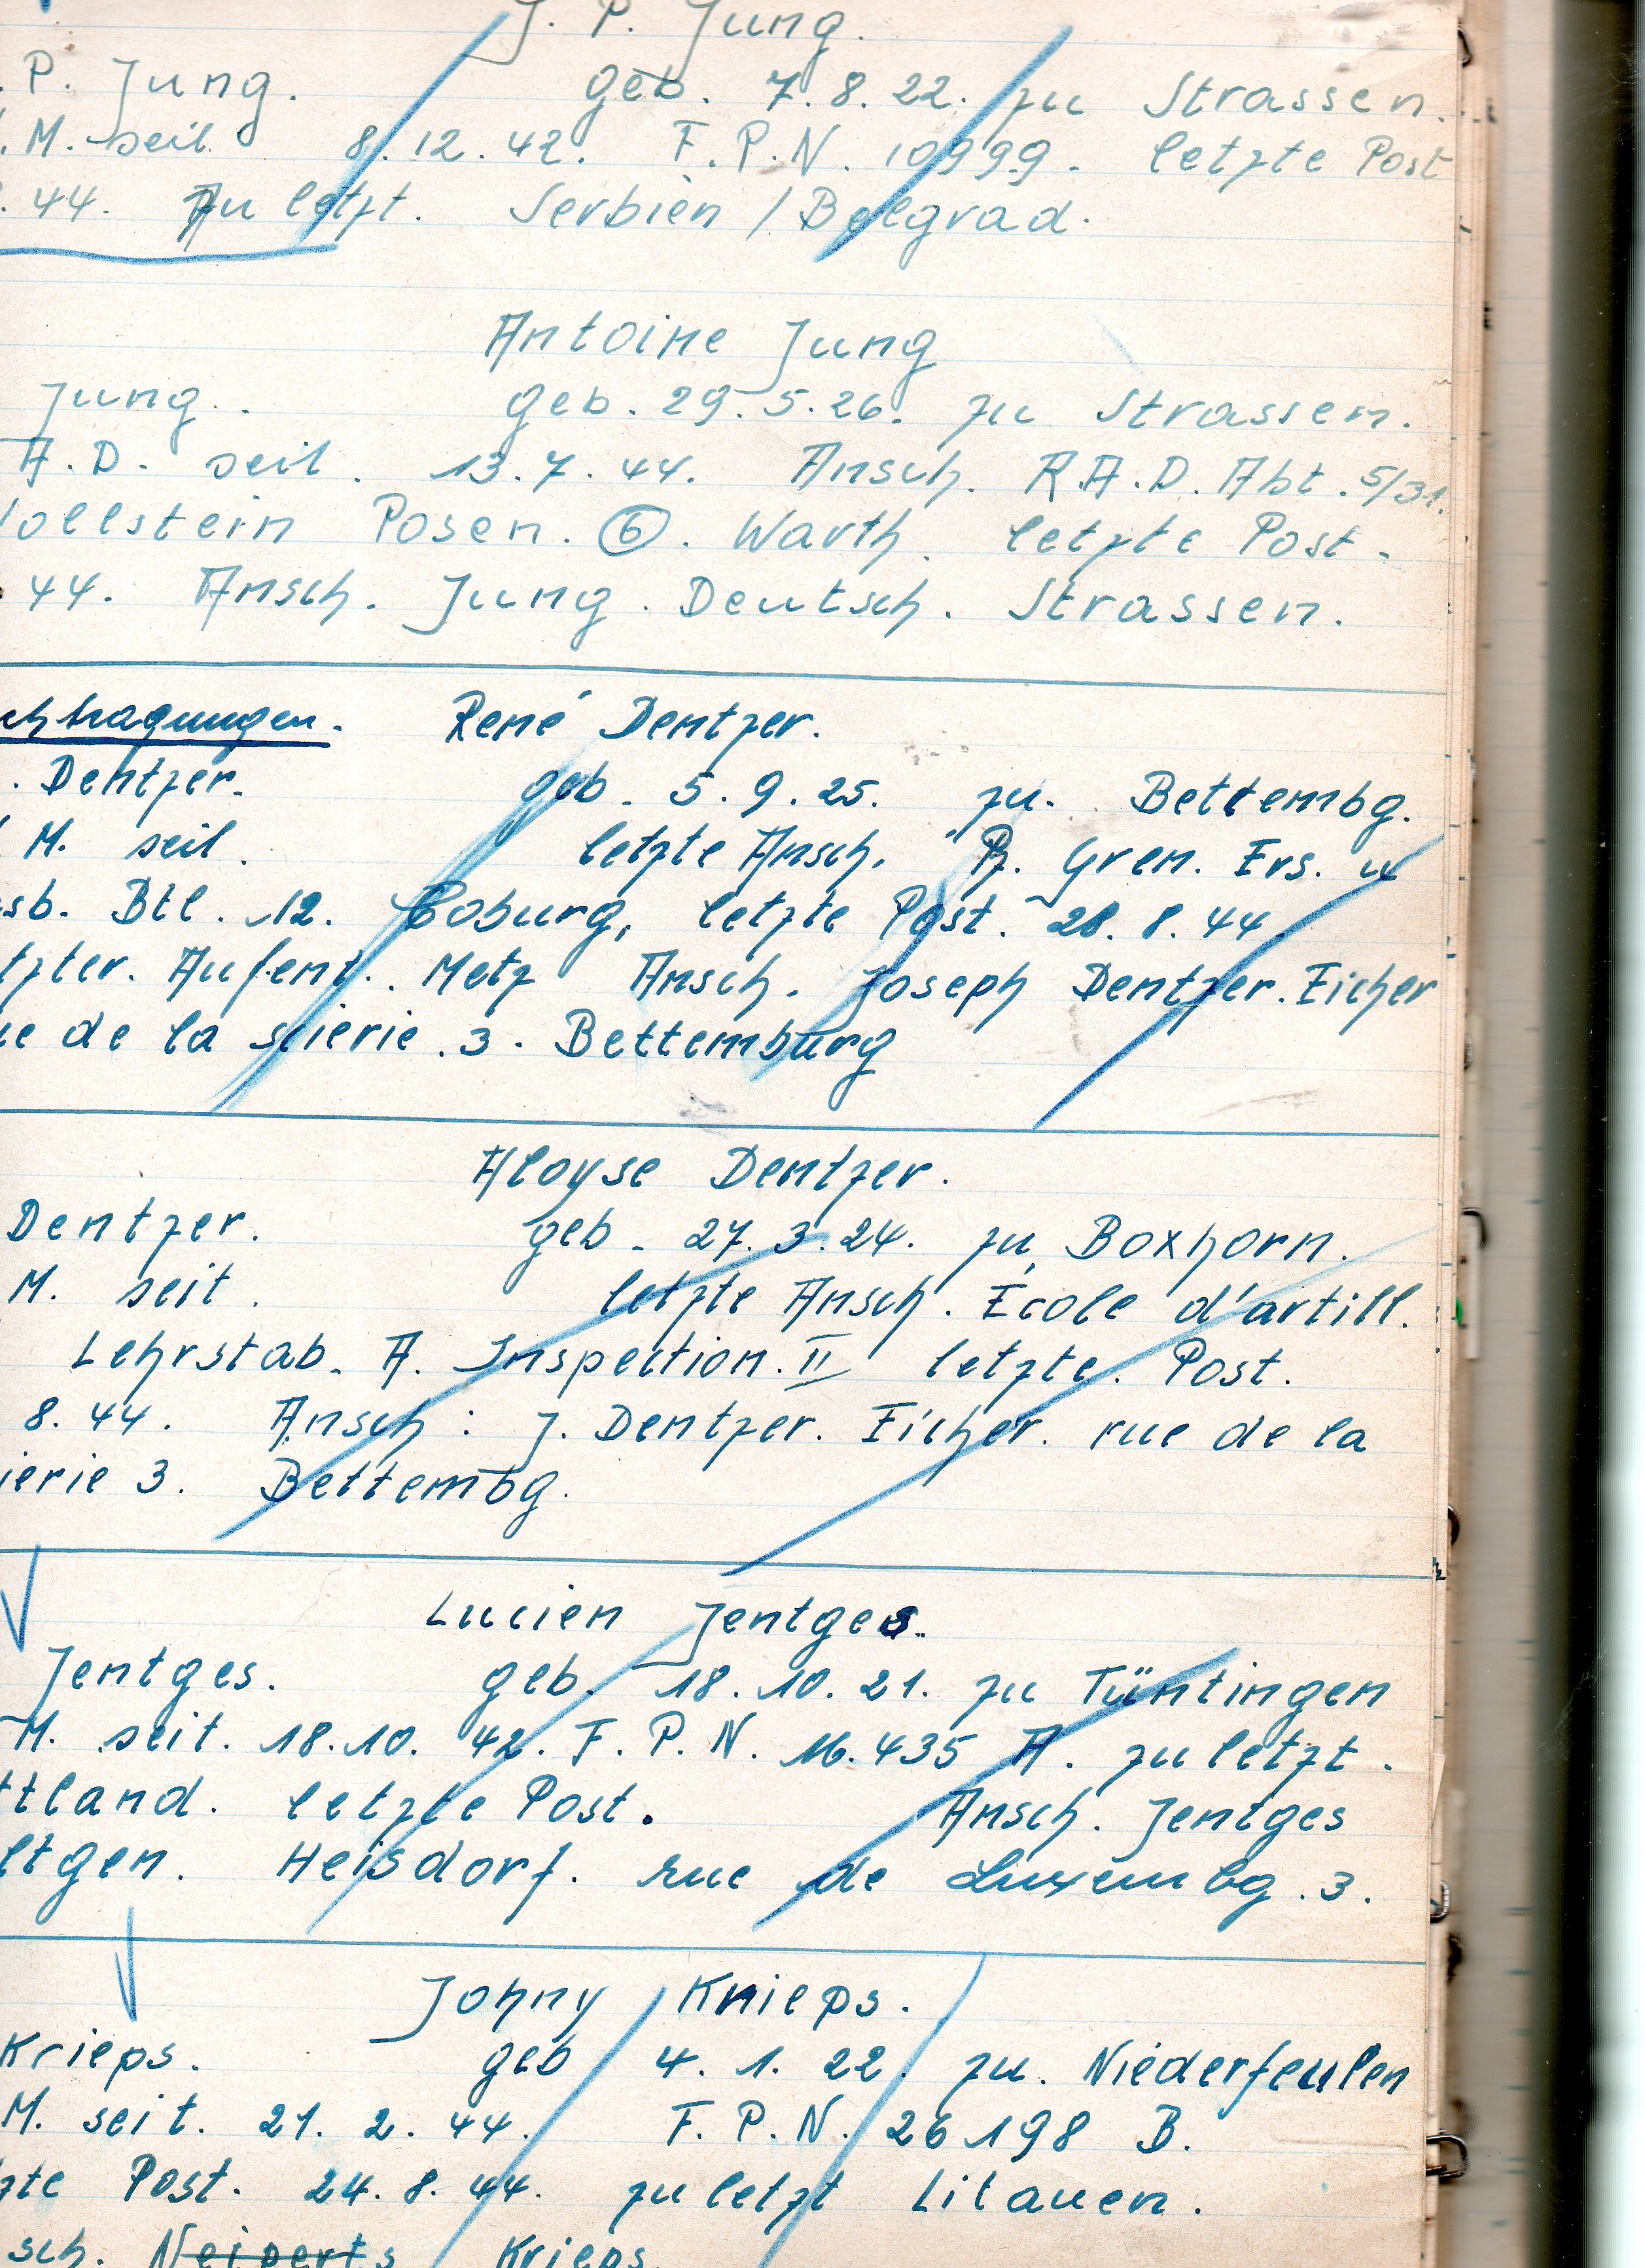 J. P. Jung.
. P. Jung. geb. 7.8.22. zu Strassen.
. M. seit 8.12.42. F.P.N. 10999. letzte Post
. 44. Zu letzt. Serbien / Belgrad.
Antoine Jung
Jung. geb. 29.5.26. zu Strassen.
A.D. seit. 13.7.44. Ansch. R.A.D. Abt. 5/31.
ollstein Posen. 6. Warth. letzte Post.
. 44. Ansch. Jung. Deutsch. Strassen.
chtragungen. René Dentzer.
. Dentzer. geb. 5.9.25. zu. Bettembg.
M. seit. letzte Ansch. Pz. Gren. Ers. u
sb. Btl. 12. Coburg, letzte Post. 28.8.44
tzter. Aufent. Metz Ansch. Joseph Dentzer. Eicher
ue de la scierie. 3. Bettemburg
Aloyse Dentzer.
Dentzer. geb. 27.3.24. zu Boxhorn.
M. seit. letzte Ansch. École d'artill.
Lehrstab. A. Inspection. II letzte. Post.
8.44. Ansch: J. Dentzer. Eicher. rue de la
ierie 3. Bettembg.
Lucien Jentges.
Jentges. geb. 18.10.21. zu Tüntingen
M. seit. 18.10. 42. F.P.N. 16.435 A. zuletzt.
ttland. letzte Post. Ansch. Jentges
ltgen. Heisdorf. rue de Luxembg. 3.
Johny Krieps.
Krieps. geb 4.1.22. zu. Niederfeulen
M. seit. 21.2.44. F.P.N. 26198 B.
zte Post. 24.8.44. zuletzt Litauen.
sch. Neiperts Krieps.